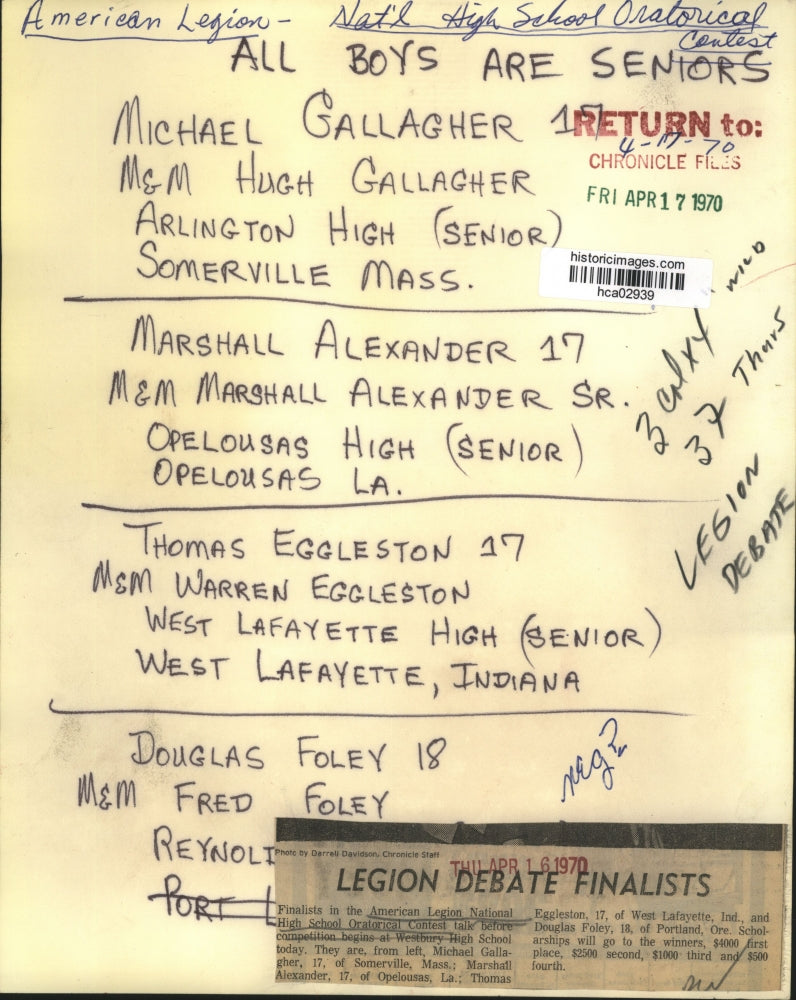 American Legion - Nat'l High School Oratorical
Contest
ALL BOYS ARE SENIORS
MICHAEL GALLAGHER 17
RETURN to:
4-17-70
CHRONICLE FILES
FRI APR 17 1970
M&M HUGH GALLAGHER
ARLINGTON HIGH (SENIOR)
SOMERVILLE MASS.
historicimages.com
hca02939
MARSHALL ALEXANDER 17
M&M MARSHALL ALEXANDER SR.
OPELOUSAS HIGH (SENIOR)
OPELOUSAS LA.
3 col x 4
37 Thurs
LEGION
DEBATE
THOMAS EGGLESTON 17
M&M WARREN EGGLESTON
WEST LAFAYETTE HIGH (SENIOR)
WEST LAFAYETTE, INDIANA
DOUGLAS FOLEY 18
M&M FRED FOLEY
REYNOL
PORT L
neg?
Photo by Darrell Davidson, Chronicle Staff
THU APR 16 1970
LEGION DEBATE FINALISTS
Finalists in the American Legion National
High School Oratorical Contest talk before
competition begins at Westbury High School
today. They are, from left, Michael Galla-
gher, 17, of Somerville, Mass.; Marshall
Alexander, 17, of Opelousas, La.; Thomas
Eggleston, 17, of West Lafayette, Ind., and
Douglas Foley, 18, of Portland, Ore. Schol-
arships will go to the winners, $4000 first
place, $2500 second, $1000 third and $500
fourth.